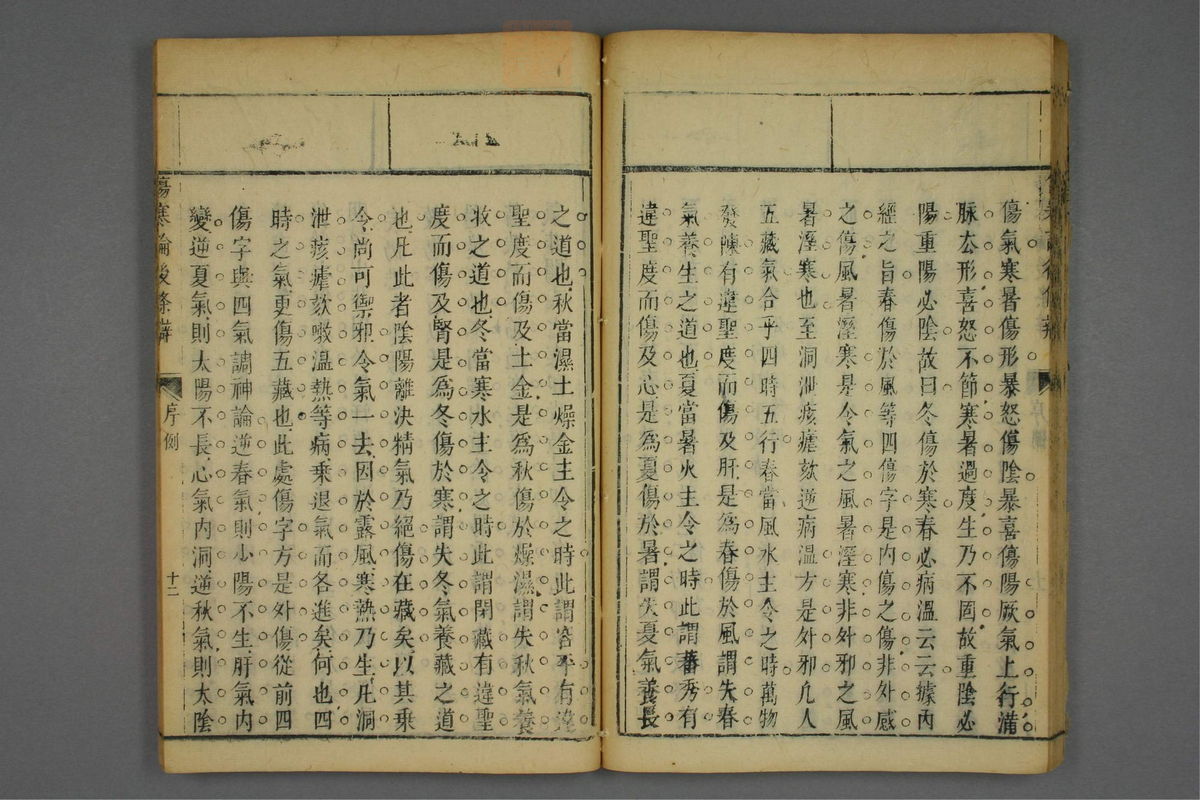 傷氣寒暑傷形暴怒傷陰暴喜傷陽厥氣上行滿
脉去形喜怒不節寒暑過度生乃不固故重陰必
陽重陽必陰故曰冬傷於寒春必病溫云云據內
經之旨春傷於風等四傷字是內傷之傷非外感
之傷風暑溼寒是令氣之風暑溼寒非外邪之風
暑溼寒也至洞泄痎瘧欬逆病溫方是外邪凢人
五藏氣合乎四時五行春當風水主令之時萬物
發陳有違聖度而傷及肝是爲春傷於風謂失春
氣養生之道也夏當暑火主令之時此謂蕃秀有
違聖度而傷及心是爲夏傷於暑謂失夏氣養長
之道也秋當濕土燥金主令之時此謂容平有違
聖度而傷及土金是爲秋傷於燥濕謂失秋氣養
收之道也冬當寒水主令之時此謂閉藏有違聖
度而傷及腎是爲冬傷於寒謂失冬氣養藏之道
也凢此者陰陽離決精氣乃絕傷在藏矣以其乘
令尚可禦邪令氣一去因於露風寒熱乃生凢洞
泄痎瘧欬嗽溫熱等病乘退氣而各進矣何也四
時之氣更傷五藏也此處傷字方是外傷從前四
傷字與四氣調神論逆春氣則少陽不生肝氣內
變逆夏氣則太陽不長心氣內洞逆秋氣則太陰
傷寒論後條辨
序例
十二